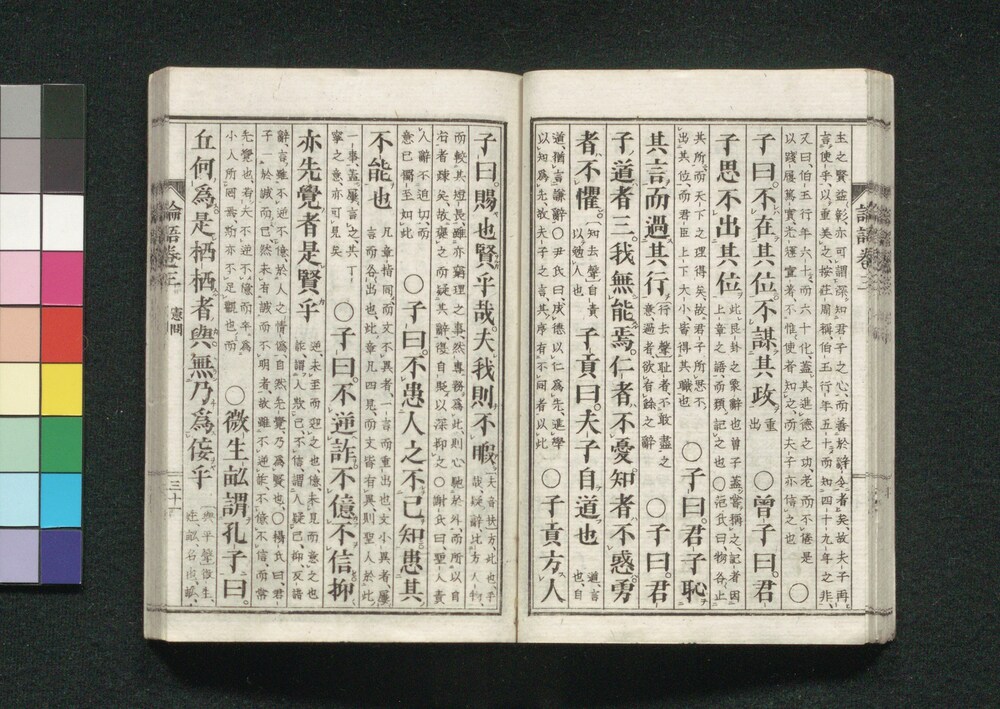 主之賢益彰亦可謂深知君子之心而善於辭令者矣故夫子再
言使乎以重美之按莊周稱伯玉行年五十而知四十九年之非
又曰伯玉行年六十而六十化蓋其進德之功老而不倦是
以踐履篤實光輝宣著不惟使者知之而夫子亦信之也
○
子曰不在其位不謀其政
重出
○曾子曰君
子思不出其位
此艮卦之象辭也曾子蓋嘗稱之記者因
上章之語而類記之也○范氏曰物各止
其所而天下之理得矣故君子所思不
出其位而君臣上下大小皆得其職也
○子曰君子恥
其言而過其行
行去聲○恥者不敢盡之
意過者欲有餘之辭
○子曰君
子道者三我無能焉仁者不憂知者不惑勇
者不懼
知去聲○自責
以勉人也
子貢曰夫子自道也
道言
也自
道猶言謙辭○尹氏曰成德以仁為先進學
以知為先故夫子之言其序有不同者以此
○子貢方人
子曰賜也賢乎哉夫我則不暇
夫音扶○方比也乎
哉疑辭比方人物
而較其短長雖亦窮理之事然專務為此則心馳於外而所以自
治者疎矣故褒之而疑其辭復自貶以深抑之○謝氏曰聖人責
人辭不迫切而
意已獨至如此
○子曰不患人之不己知患其
不能也
凡章指同而文不異者一言而重出也文小異者屢
言而各出也此章凡四見而文皆有異則聖人於此
一事蓋屢言之其丁
寧之意亦可見矣
○子曰不逆詐不億不信抑
亦先覺者是賢乎
逆未至而迎之也億未見而意之也
詐謂人欺己不信謂人疑己抑反語
辭言雖不逆不億而於人之情偽自然先覺乃為賢也○楊氏曰君
子一於誠而已然未有誠而不明者故雖不逆詐不億不信而常
先覺也若夫不逆不億而卒為
小人所罔焉斯亦不足觀也而
○微生畝謂孔子曰
丘何為是栖栖者與無乃為佞乎
與平聲○微生
姓畝名也畝
論語卷三
論語卷三
憲問
三十一